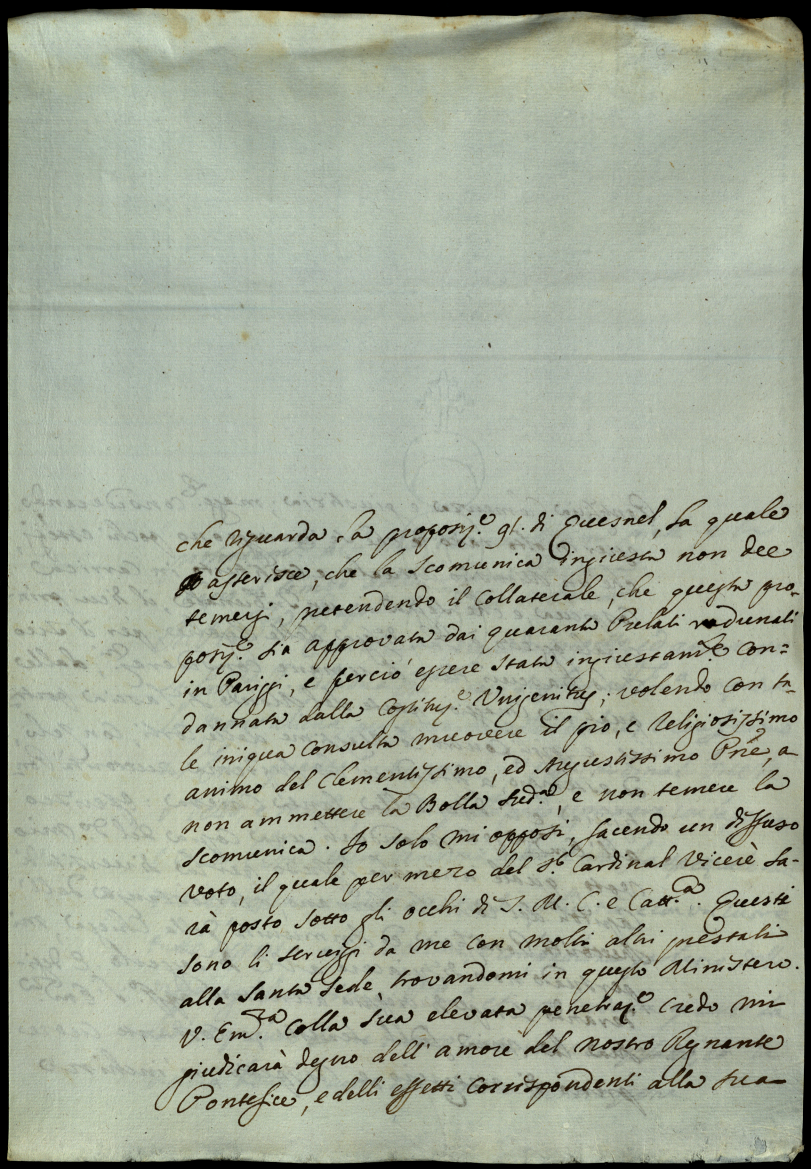 che riguarda la proposiz.e 91. di Quesnel, la quale
asserisce, che la scomunica ingiusta non dee
temersi, pretendendo il Collaterale, che questa pro-
posiz.e sia approvata dai quaranta Prelati radunati
in Pariggi, e perciò essere stata ingiustam.te con=
dannata dalla Costituz.e Unigenitus; volendo con ta-
le iniqua consulta muovere il pio, e religiosissimo
animo del Clementissimo, ed Augustissimo Prñe, a
non ammettere la Bolla sud.a, e non temere la
scomunica. Io solo mi opposi, facendo un diffuso
voto, il quale per mezo del S.r Cardinal Vicerè sa-
rà posto sotto gli occhi di S. M. C. e Catt.ca. Questi
sono li servizj da me con molti altri prestati
alla Santa Sede, trovandomi in questo Ministero.
V. Em.za colla sua elevata penetraz.e credo mi
giudicarà degno dell'amore del nostro Regnante
Pontefice, e delli effetti corrispondenti alla sua